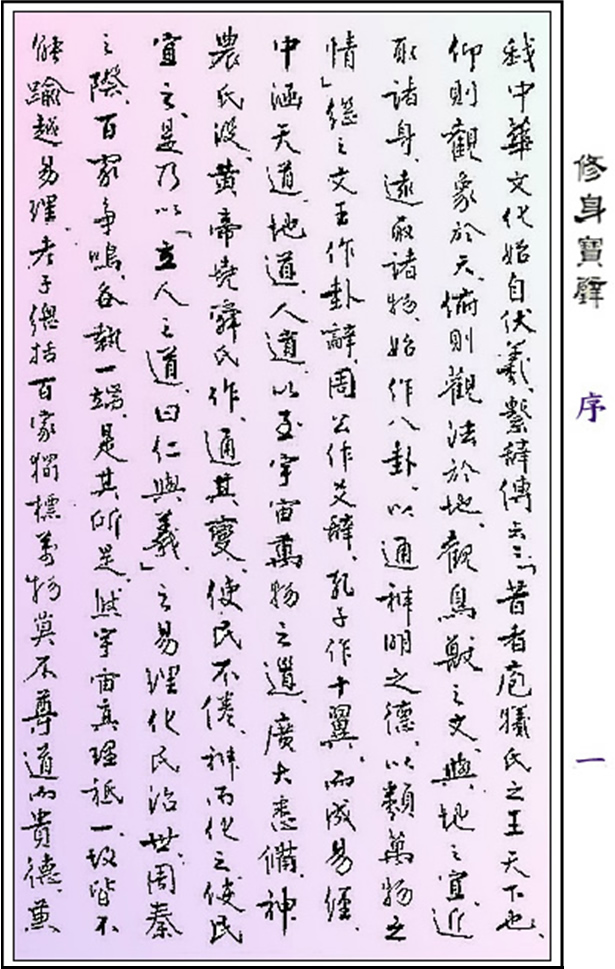 修身寶璧 序 一
我中華文化始自伏羲、繫辭傳云：「昔者庖犧氏之王天下也、
仰則觀象於天、俯則觀法於地、觀鳥獸之文、與地之宜、近
取諸身、遠取諸物、始作八卦、以通神明之德、以類萬物之
情」繼之文王作卦辭、周公作爻辭、孔子作十翼、而成易經、
中涵天道、地道、人道、以至宇宙萬物之道、廣大悉備、神
農氏沒、黃帝堯舜氏作、通其變、使民不倦、神而化之使民
宜之、是乃以「立人之道、曰仁與義、」之易理化民治世、周秦
之際、百家爭鳴、各執一端、是其所是、然宇宙真理祗一、故皆不
能踰越易理、老子總括百家獨標萬物莫不尊道而貴德、莫